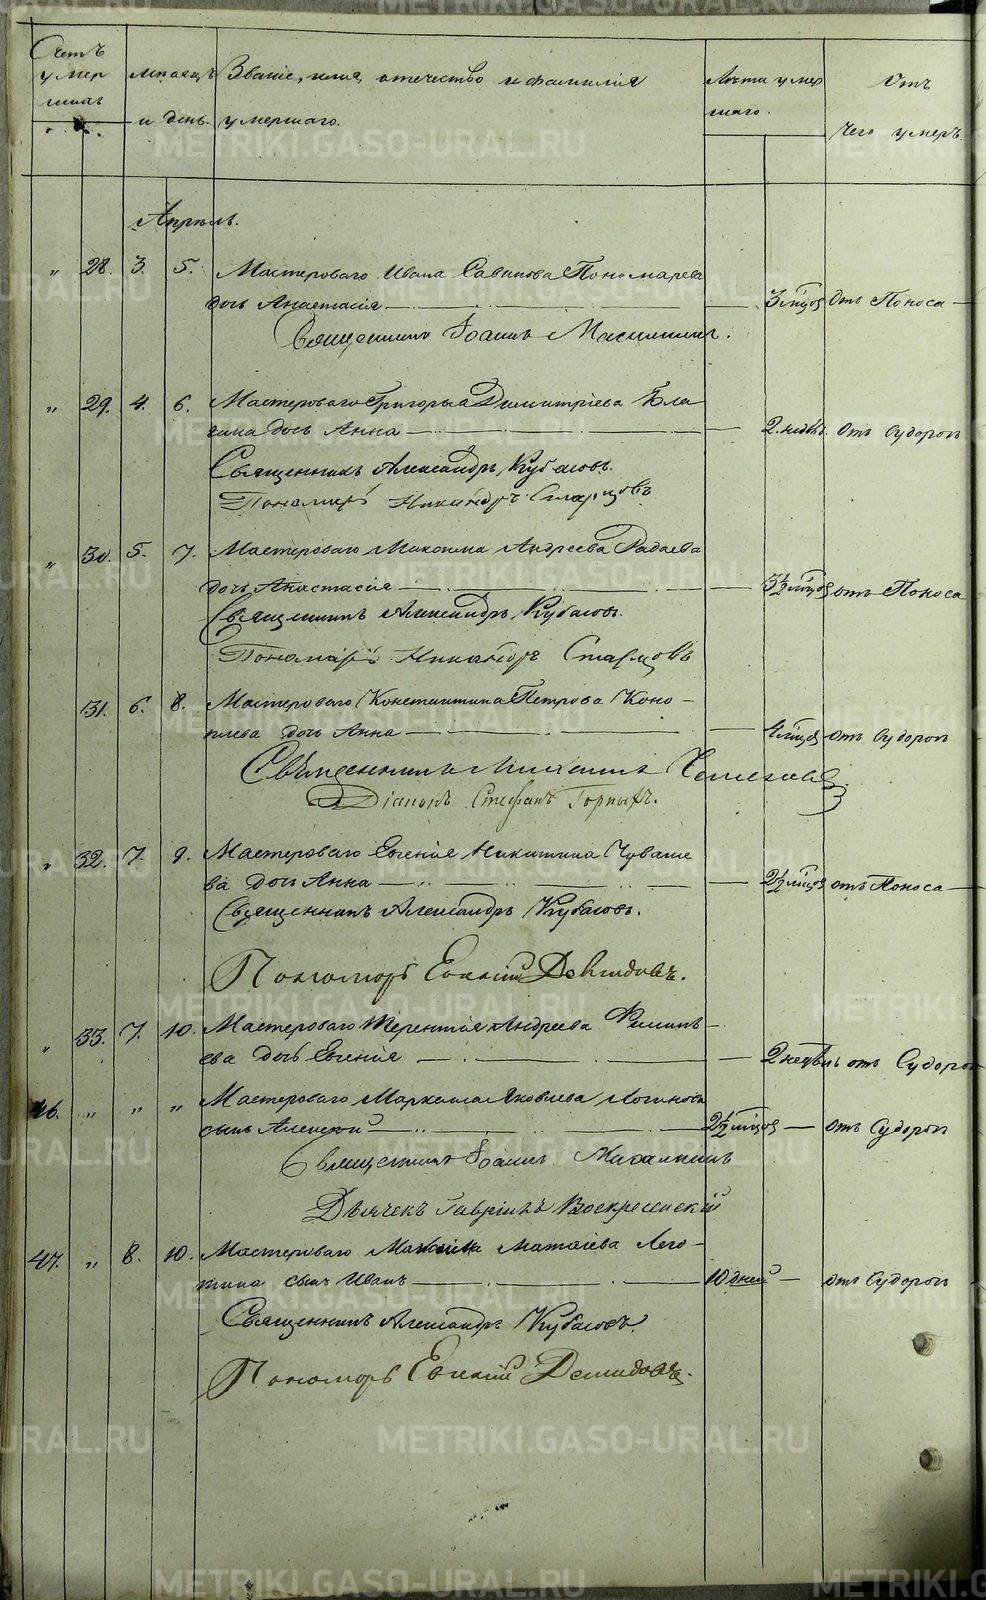 Счетъ умер шихъ
мѣсяцъ и день.
Званіе, имя, отечество и фамилія умершаго.
Лѣта умер шаго.
Отъ чего умеръ.
Апрѣль.
" 28. 3. 5. Мастероваго Ивана Савинова Пономарева
дочь Анастасія 3 мѣсцов Отъ Поноса
Священникъ Іоаннъ
" 29. 4. 6. Мастероваго Григорья Димитріева Бла
гина дочь Анна 2. недѣль. Отъ Судорогъ
Священникъ Александръ Кубасовъ.
Пономарь Никандръ Старцовъ
" 30. 5. 7. Мастероваго Максима Андреева Радаева
дочь Анастасія 3½ мѣсцов отъ Поноса
Священникъ Александръ Кубасовъ.
Пономарь Никандръ Старцовъ
31. 6. 8. Мастероваго Константина Петрова Коно-
плева дочь Анна 4 мѣсцов отъ Судорогъ
Священникъ Михаилъ
Діаконъ Стефанъ Горныхъ.
" 32. 7. 9. Мастероваго Евгенія Никитина Чуваше
ва дочь Анна 2½ мѣсцов отъ Поноса
Священникъ Александръ Кубасовъ.
Пономарь Евгеній Демидовъ.
" 33. 7. 10. Мастероваго Терентія Андреева Филипь-
ева дочь Евгенія 2 недѣль отъ Судорог
46. " " " Мастероваго Маркела Яковлева Логинова
сынъ Алексей 2½ мѣсцов отъ Судорогъ
Священникъ Іоаннъ
Дьячекъ Гавріилъ Воскресенскій
47. " 8. 10. Мастероваго Матвіева Лего-
тина сынъ Иванъ 10 дней отъ Судорогъ
Священникъ Александръ Кубасовъ.
Пономарь Евгеній Демидовъ.
METRIKI.GASO-URAL.RU